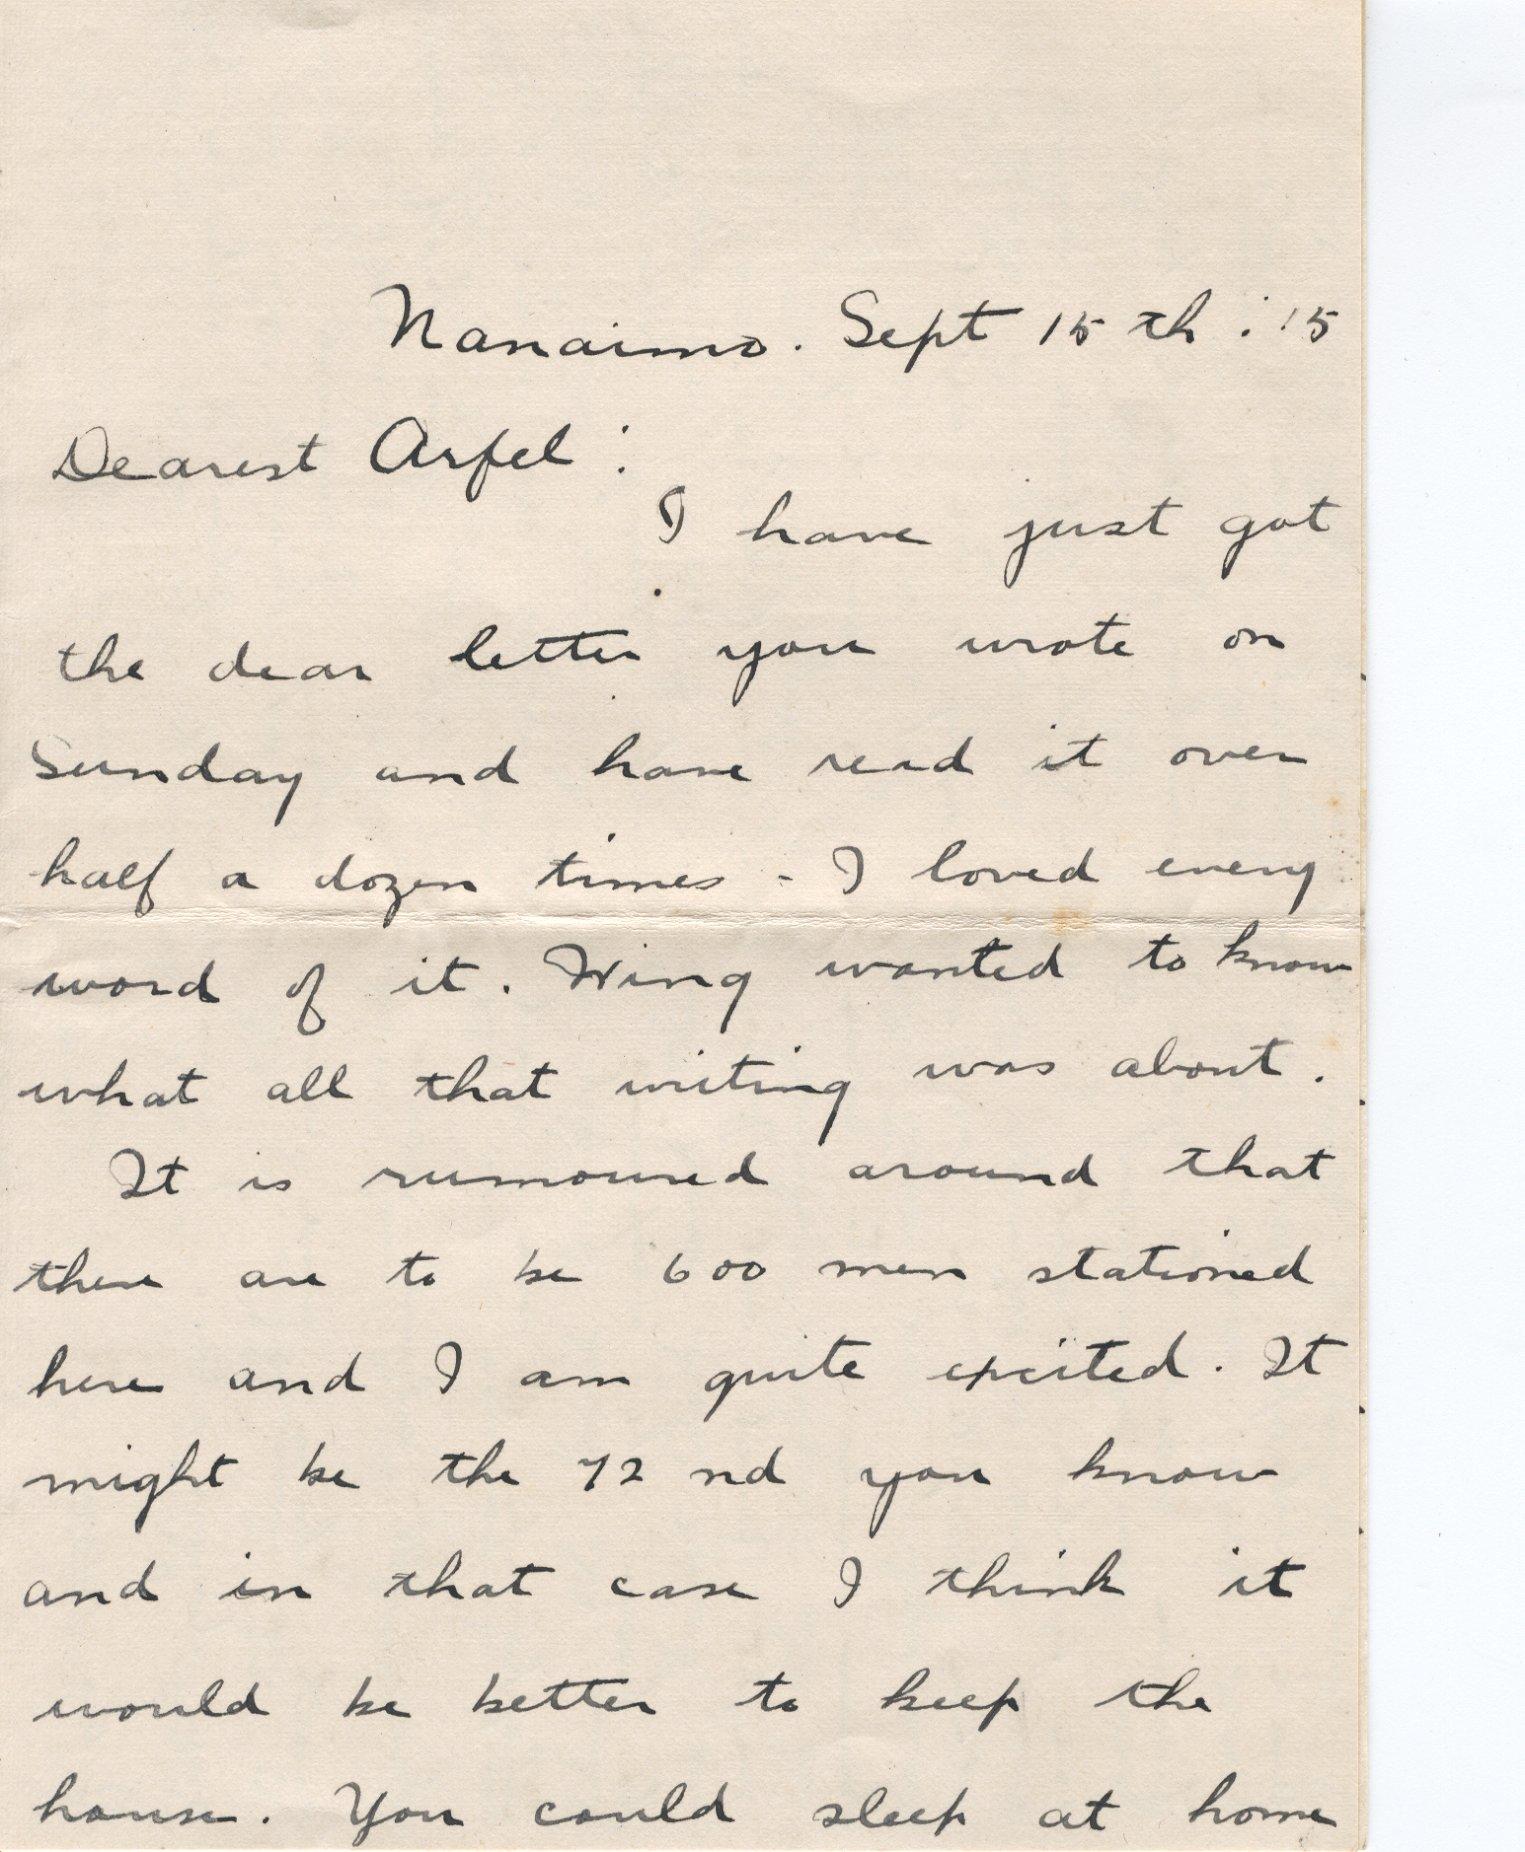 Nanaimo. Sept 15th: '15
Dearest Arfel:
I have just got
the dear letter you wrote on
Sunday and have read it over
half a dozen times - I loved every
word of it. Wing wanted to know
what all that writing was about.
It is rumoured around that
there are to be 600 men stationed
here and I am quite excited. It
might be the 72nd you know
and in that case I think it
would be better to keep the
house. You could sleep at home